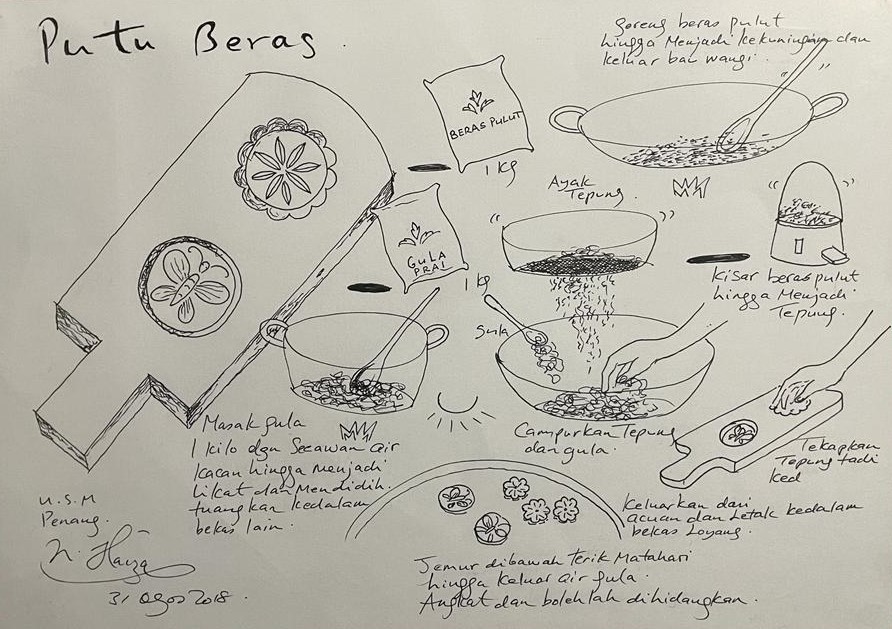 Putu Beras.
goreng beras pulut
hingga Menjadi kekuningan dan
keluar bau wangi.
BERAS PULUT
1 kg
GULA
PRAI
1 kg
Ayak
Tepung.
Kisar beras pulut
hingga Menjadi
Tepung.
gula
Masak gula
1 kilo dgn Secawan air
kacau hingga menjadi
Likat dan Mendidih.
tuangkan kedalam
bekas lain.
Campurkan Tepung
dan gula.
Tekapkan
Tepung tadi
ked
Keluarkan dari
acuan dan Letak kedalam
bekas Loyang.
Jemur dibawah Terik Matahari
hingga keluar air gula.
Angkat dan bolehlah dihidangkan.
U.S.M
Penang.
31 Ogos 2018.